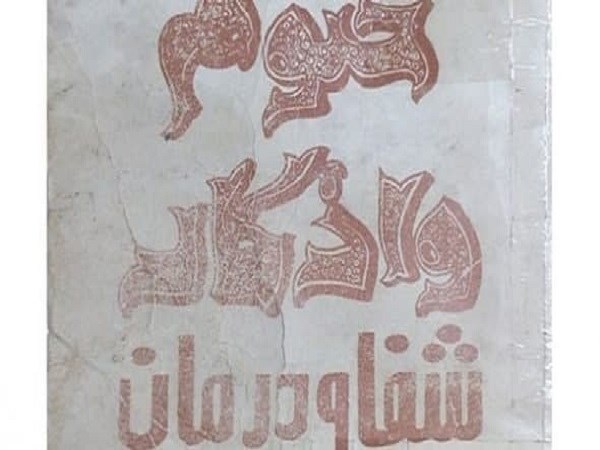 ختوم
واذکار
شفا و درمان